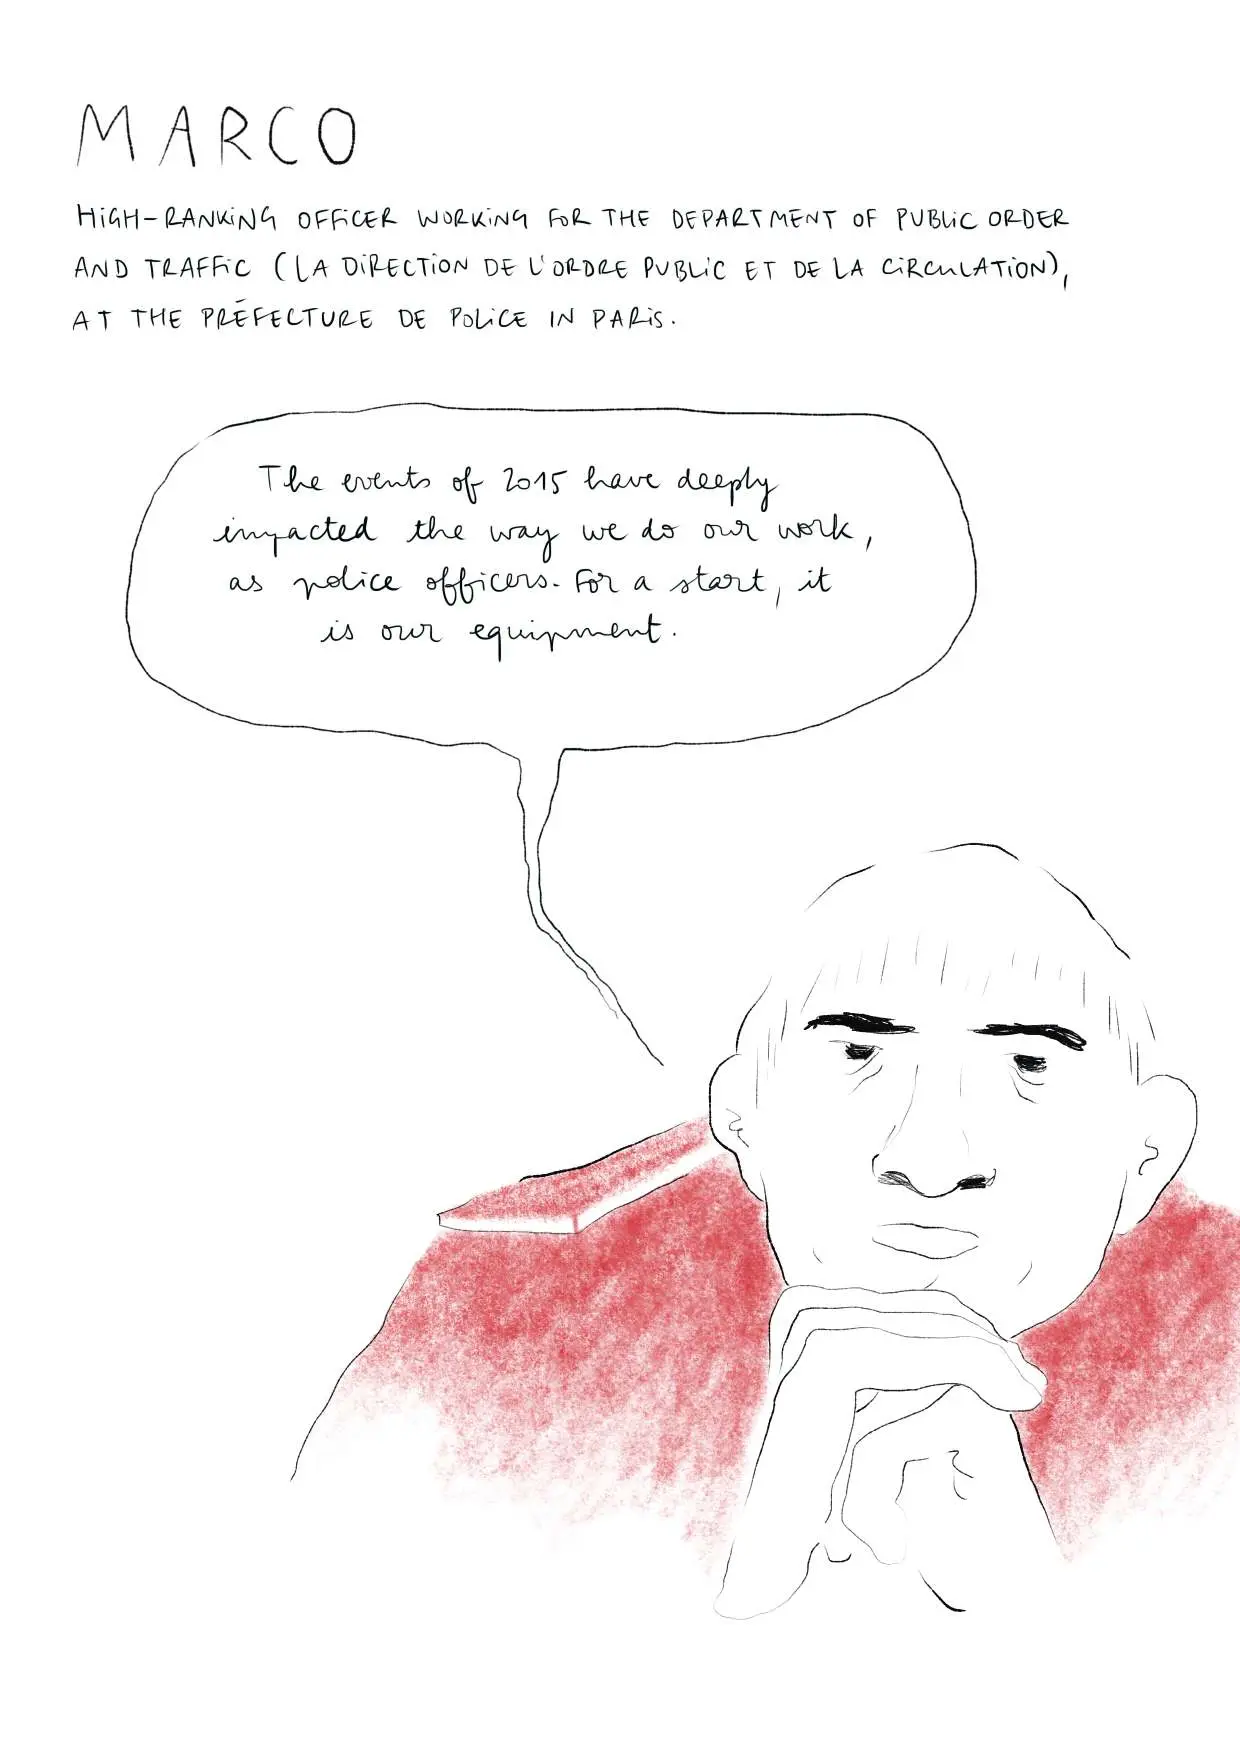 MARCO
HIGH-RANKING OFFICER WORKING FOR THE DEPARTMENT OF PUBLIC ORDER
AND TRAFFIC (LA DIRECTION DE L'ORDRE PUBLIC ET DE LA CIRCULATION),
AT THE PRÉFECTURE DE POLICE IN PARIS.
The events of 2015 have deeply
impacted the way we do our work,
as police officers. For a start, it
is our equipment.